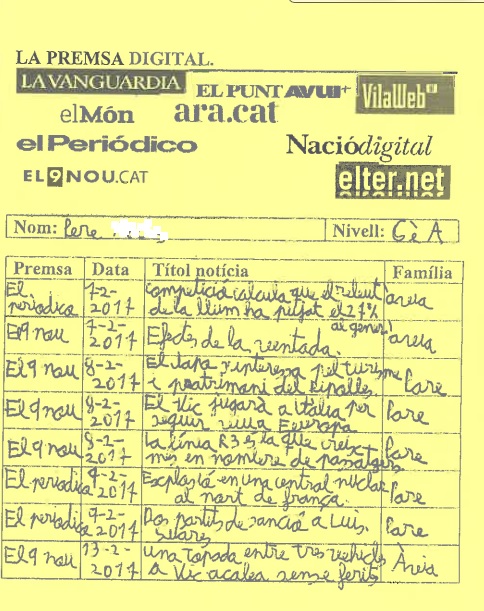 LA PREMSA DIGITAL.
LA VANGUARDIA EL PUNT AVUI+ VilaWeb
elMón ara.cat
el Periódico Naciódigital
EL9NOU.CAT elter.net
Nom: Pere Nivell: 6è A
Premsa Data Títol notícia Família
El periodico 7-2-2017 competicia calcula que el rebut de la llum ha pujat el 27% al gener àvia
El 9 nou 7-2-2017 Efectes de la ventada. àvia
El 9 nou 8-2-2017 El tapa s'interessa pel turisme i patrimani del Ripollès Pare
El 9 nou 8-2-2017 El Vic jugarà a Itàlia per seguir viu a Europa Pare
El 9 nou 8-2-2017 La línia R3 és la que creix més en nombre de passatgers Pare
El periodica 9-2-2017 Explosió en una central nuclar al nort de frança. Pare
El periodica 9-2-2017 Dos partits de sanció a Luis. Suares Pare
El 9 nou 13-2-2017 una topada entre tres vehicles a Vic acaba sense ferits Àvia